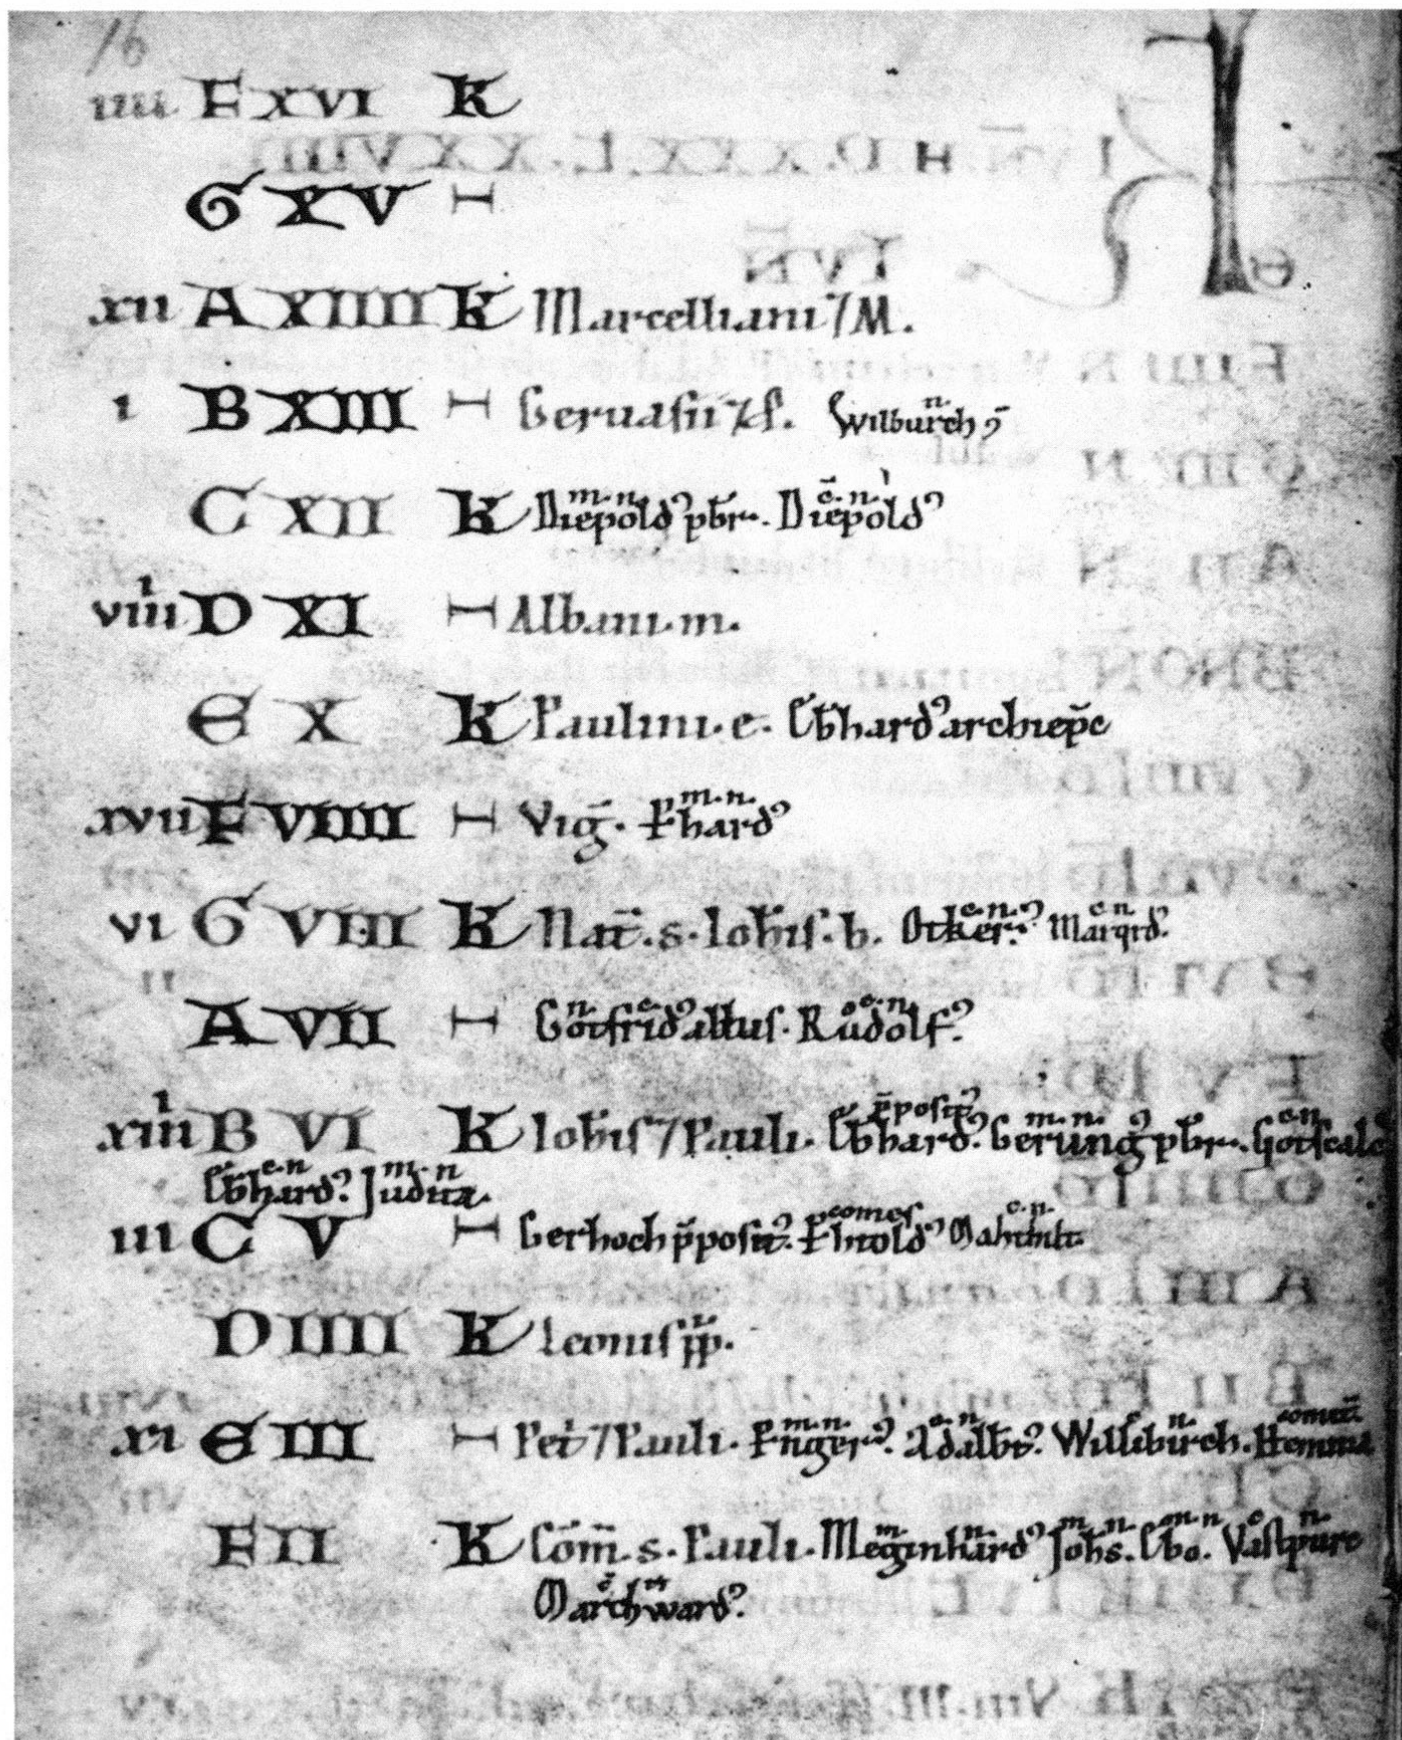 16
iiii F XVI K
G XV H
xii A XIIII K Marcelliani 7 M.
i B XIII H Geruasii 7 P. Wilburch ꝯ n.
C XII K Diepold⁹ pbr. m. n. Diepold⁹ c. n.
viiii D XI H Albani. m.
E X K Paulini. e. Ebhard⁹ archiep̄c
xvii F VIIII H Vig̅. P̱hard⁹ m. n.
vi G VIII K Nat̅. s. Ioh̅is. b. Otker⁹ c. n. Marqrd⁹. c. n.
A VII H Gotfrid⁹ abbas. n. c. Růdolf⁹. c. n.
xiiii B VI K Ioh̅is 7 Pauli. Ebhard⁹. p̅posit⁹ Gerung⁹ pbr. m. n. Gotscalc c. n.
Ebhard⁹. c. n Judita. m. n
iii C V H Gerhoch p̅posit⁹. P̱htold⁹ comes Mahthilt c. n.
D IIII K Leonis p̅p.
xi E III H Pet̅ 7 Pauli. P̱nger⁹. m. n. Adalbt⁹. c. n Willibirch. c n. Hemma comit̅.
F II K Com̅. s. Pauli. Meginhard⁹ m. n. Joh̅s. m. n. Ebo. m. n Vastpurc c n.
Marchward⁹. c n